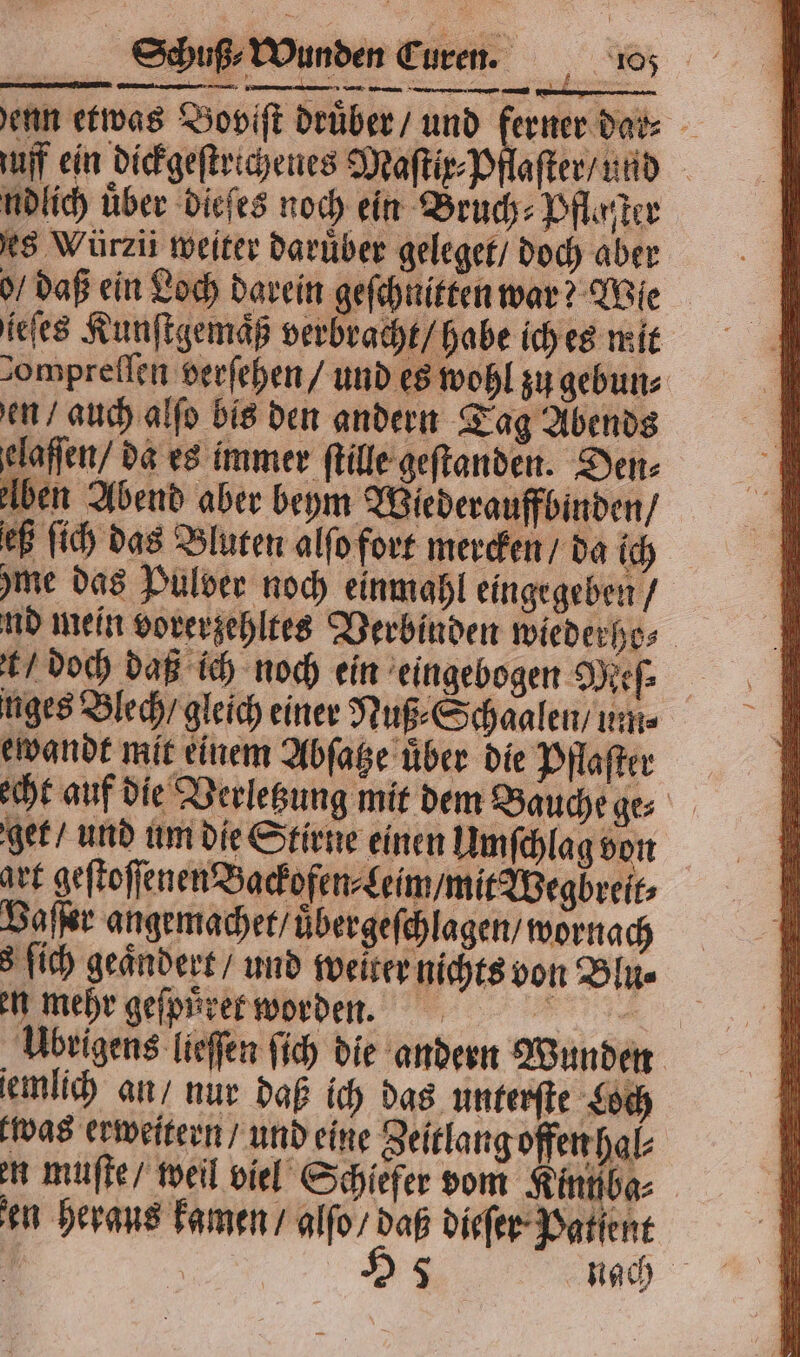 Schuß⸗Wunden Curen. 105
enn etwas Boviſt druͤber / und ferner dar⸗
uff ein dickgeſtrichenes Maſtix⸗Pflaſter / und
ndlich uͤber dieſes noch ein Bruch⸗Pflaſter
es Würzii weiter daruͤber geleget / doch aber
o / daß ein Loch darein geſchnitten war? Wie
ieſes Kunſtgemaͤß verbracht / habe ich es mit
Compreſſen verſehen / und es wohl zu gebun⸗
en / auch alſo bis den andern Tag Abends
elaſſen / da es immer ſtille geſtanden. Den⸗
elben Abend aber beym Wiederauffbinden /
eß ſich das Bluten alſofort mercken / da ich
hme das Pulver noch einmahl eingegeben /
nd mein vorerzehltes Verbinden wiederho⸗
t / doch daß ich noch ein eingebogen Meſ⸗
inges Blech / gleich einer Nuß⸗Schaalen / um⸗
ewandt mit einem Abſatze uͤber die Pflaſter
echt auf die Verletzung mit dem Bauche ge⸗
get / und um die Stirne einen Umſchlag von
art geſtoſſenen Backofen⸗Leim / mit Wegbreit⸗
Waſſer angemachet / uͤbergeſchlagen / wornach
s ſich geaͤndert / und weiter nichts von Blu⸗
en mehr geſpuͤret worden.
Ubrigens lieſſen ſich die andern Wunden
iemlich an / nur daß ich das unterſte Loch
twas erweitern / und eine Zeitlang offen hal⸗
en muſte / weil viel Schiefer vom Kinnba⸗
ken heraus kamen / alſo / daß dieſer Patient
H 5 nach